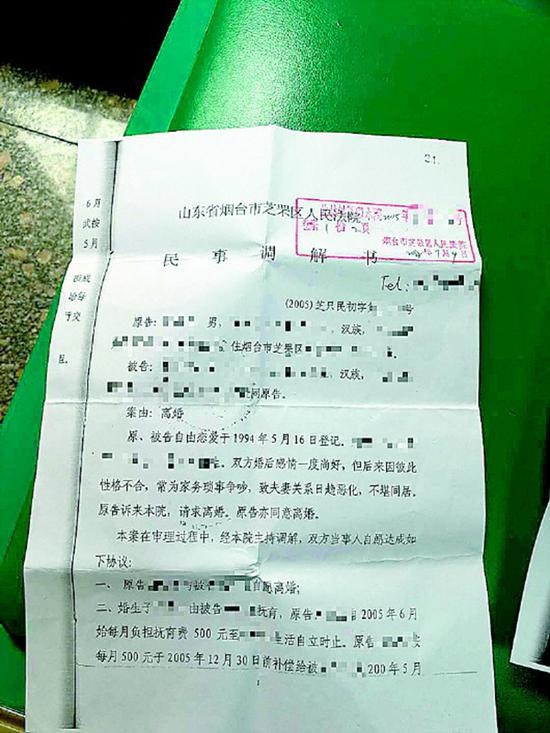 21.
6月
武按
5月
山东省烟台市芝罘区人民法院
2005年
份 页
烟台市芝罘区人民法院
年7月9日
民事调解书
Tel:
(2005)芝只民初字 号
原告: 男, 汉族,
住烟台市芝罘区
被告: 汉族,
同原告。
案由:离婚
原、被告自由恋爱于1994年5月16日登记。
双方婚后感情一度尚好,但后来因彼此
性格不合,常为家务琐事争吵,致夫妻关系日趋恶化,不堪同居。
原告诉来本院,请求离婚。原告亦同意离婚。
本案在审理过程中,经本院主持调解,双方当事人自愿达成如
下协议:
一、原告 与被告 自愿离婚;
二、婚生子 由被告 抚育,原告 自2005年6月
始每月负担抚育费500元至 生活自立时止。原告 按
每月500元于2005年12月30日前补偿给被 200 年5月
1